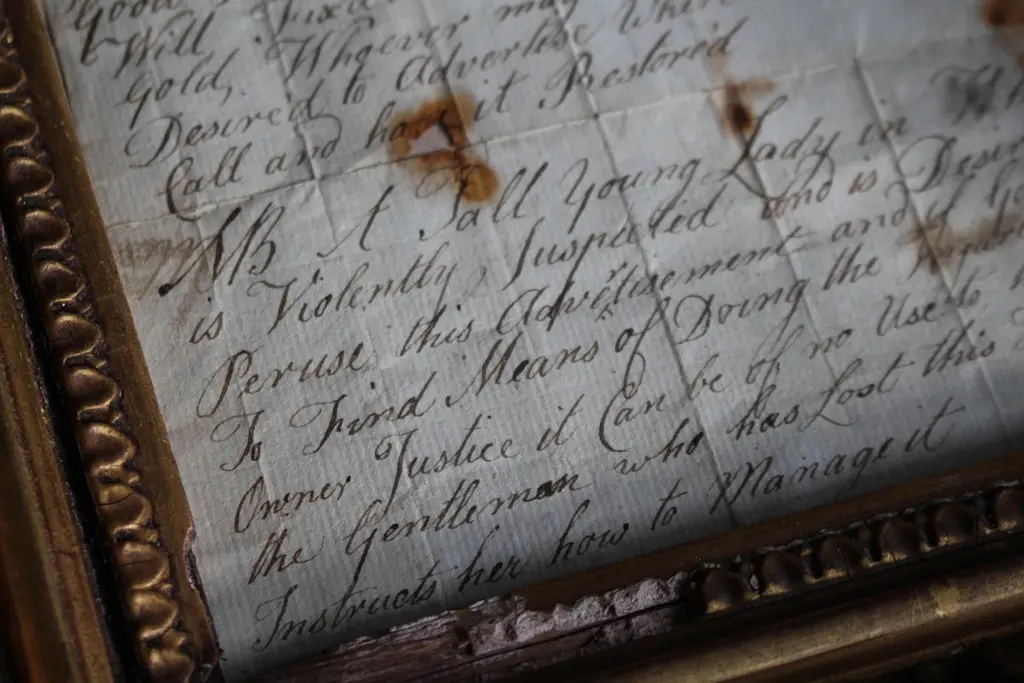 Good
& Will fixd
Gold, Whoever may
Desired to Advertise Where
Call and have it Restored
NB A Tall Young Lady in
is Violently Suspected and is Desir
Peruse this Advertisement and if
To Find Means of Doing the
Owner Justice it Can be of no Use to
the Gentleman who has Lost this
Instructs her how to Manage it